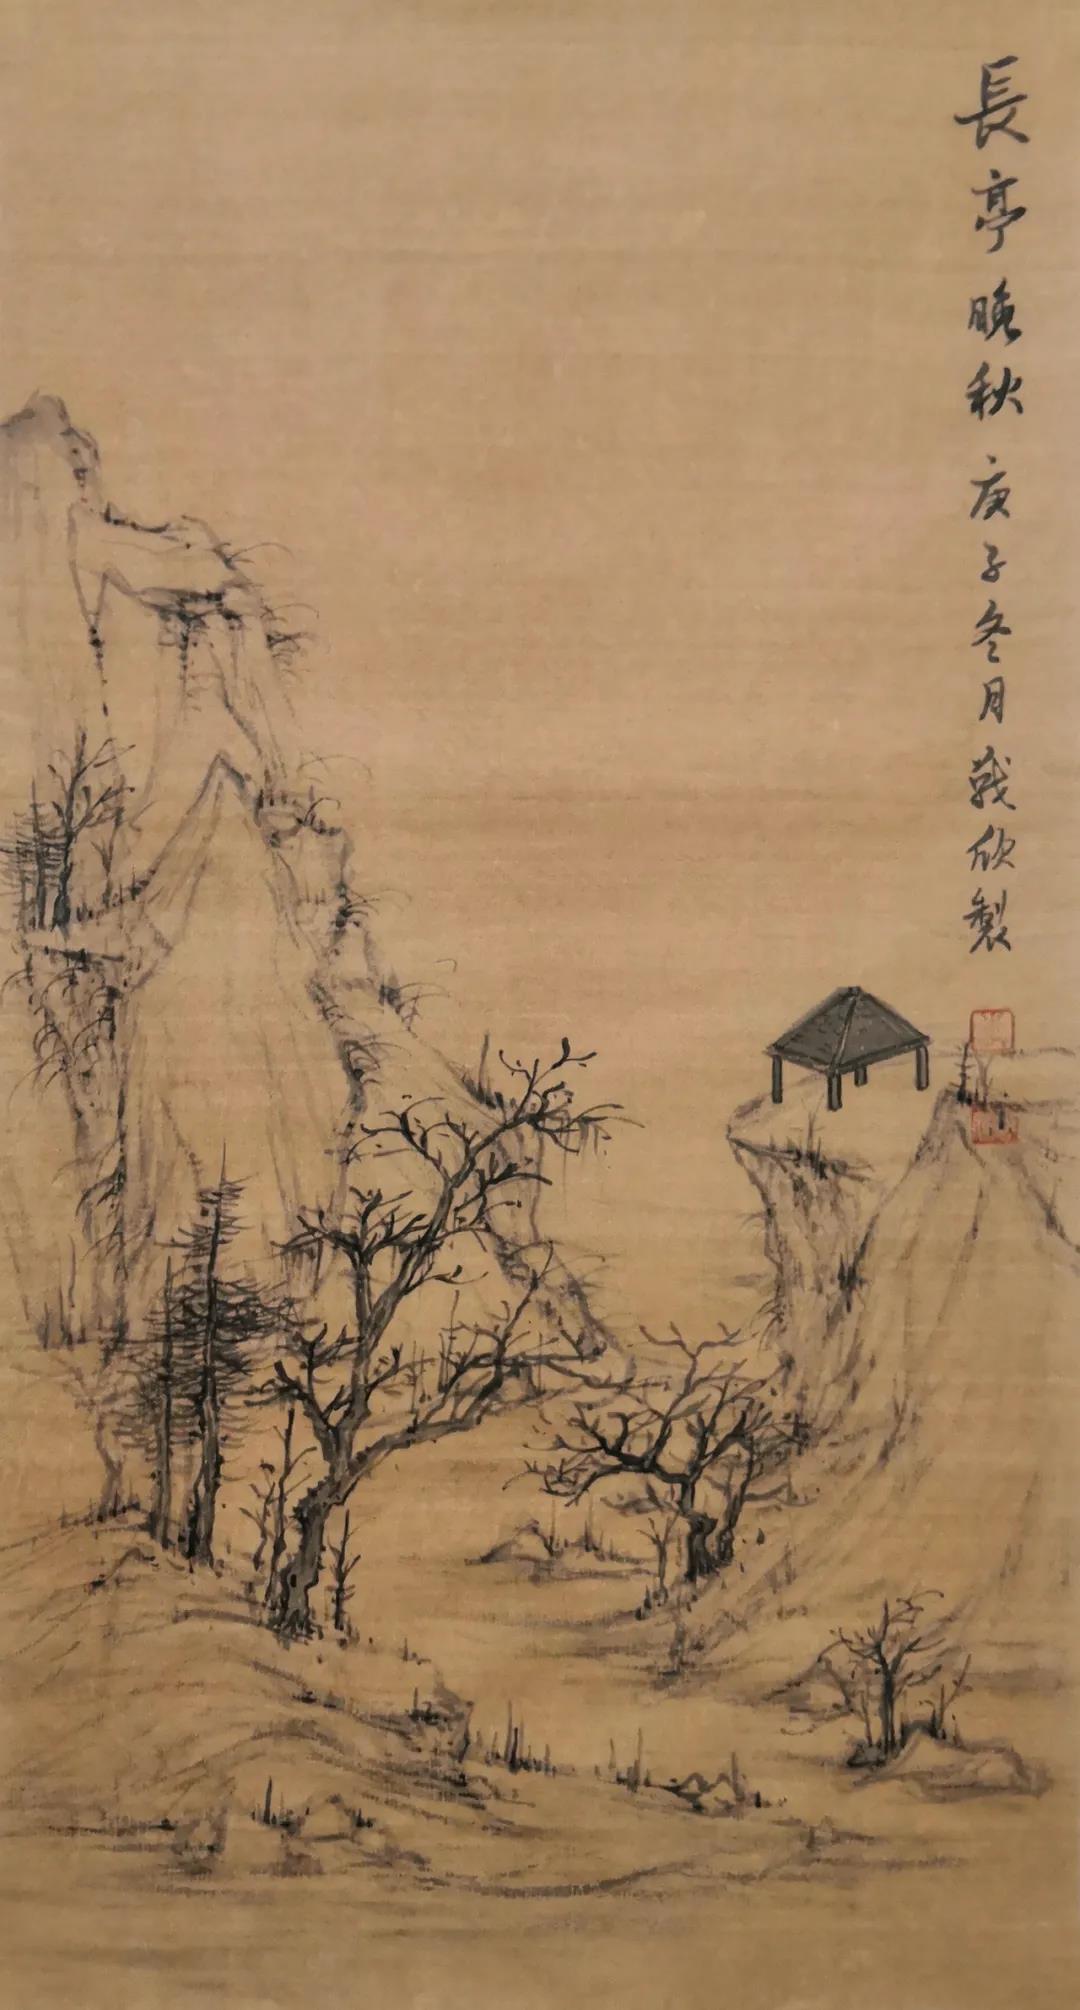 長亭晚秋 庚子冬月戰欣製